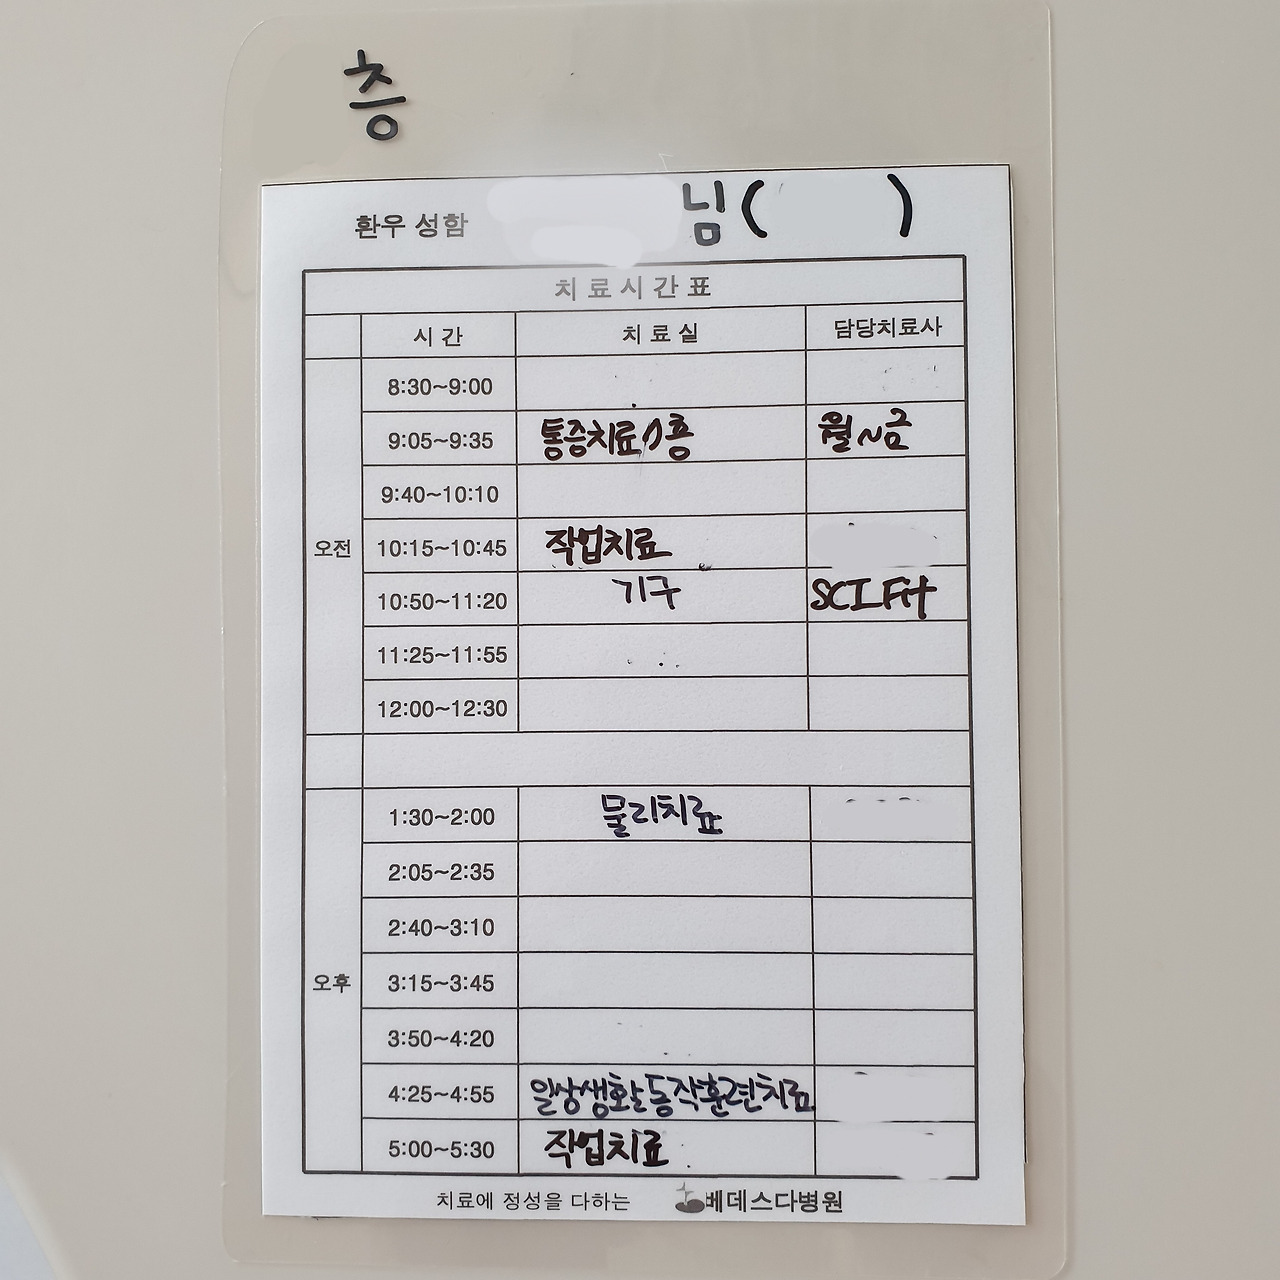 층
환우 성함 님( )
치료시간표
시간 치료실 담당치료사
8:30~9:00
9:05~9:35 통증치료 1층 월~금
9:40~10:10
오전 10:15~10:45 작업치료
10:50~11:20 기구 SCIFit
11:25~11:55
12:00~12:30
1:30~2:00 물리치료
2:05~2:35
2:40~3:10
오후 3:15~3:45
3:50~4:20
4:25~4:55 일상생활동작훈련치료
5:00~5:30 작업치료
치료에 정성을 다하는 베데스다병원